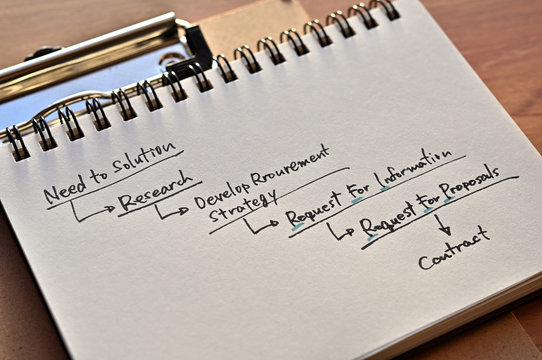 Need to Solution
Research
Develop Prourement
Strategy
Request For Information
Request For Proposals
Contract